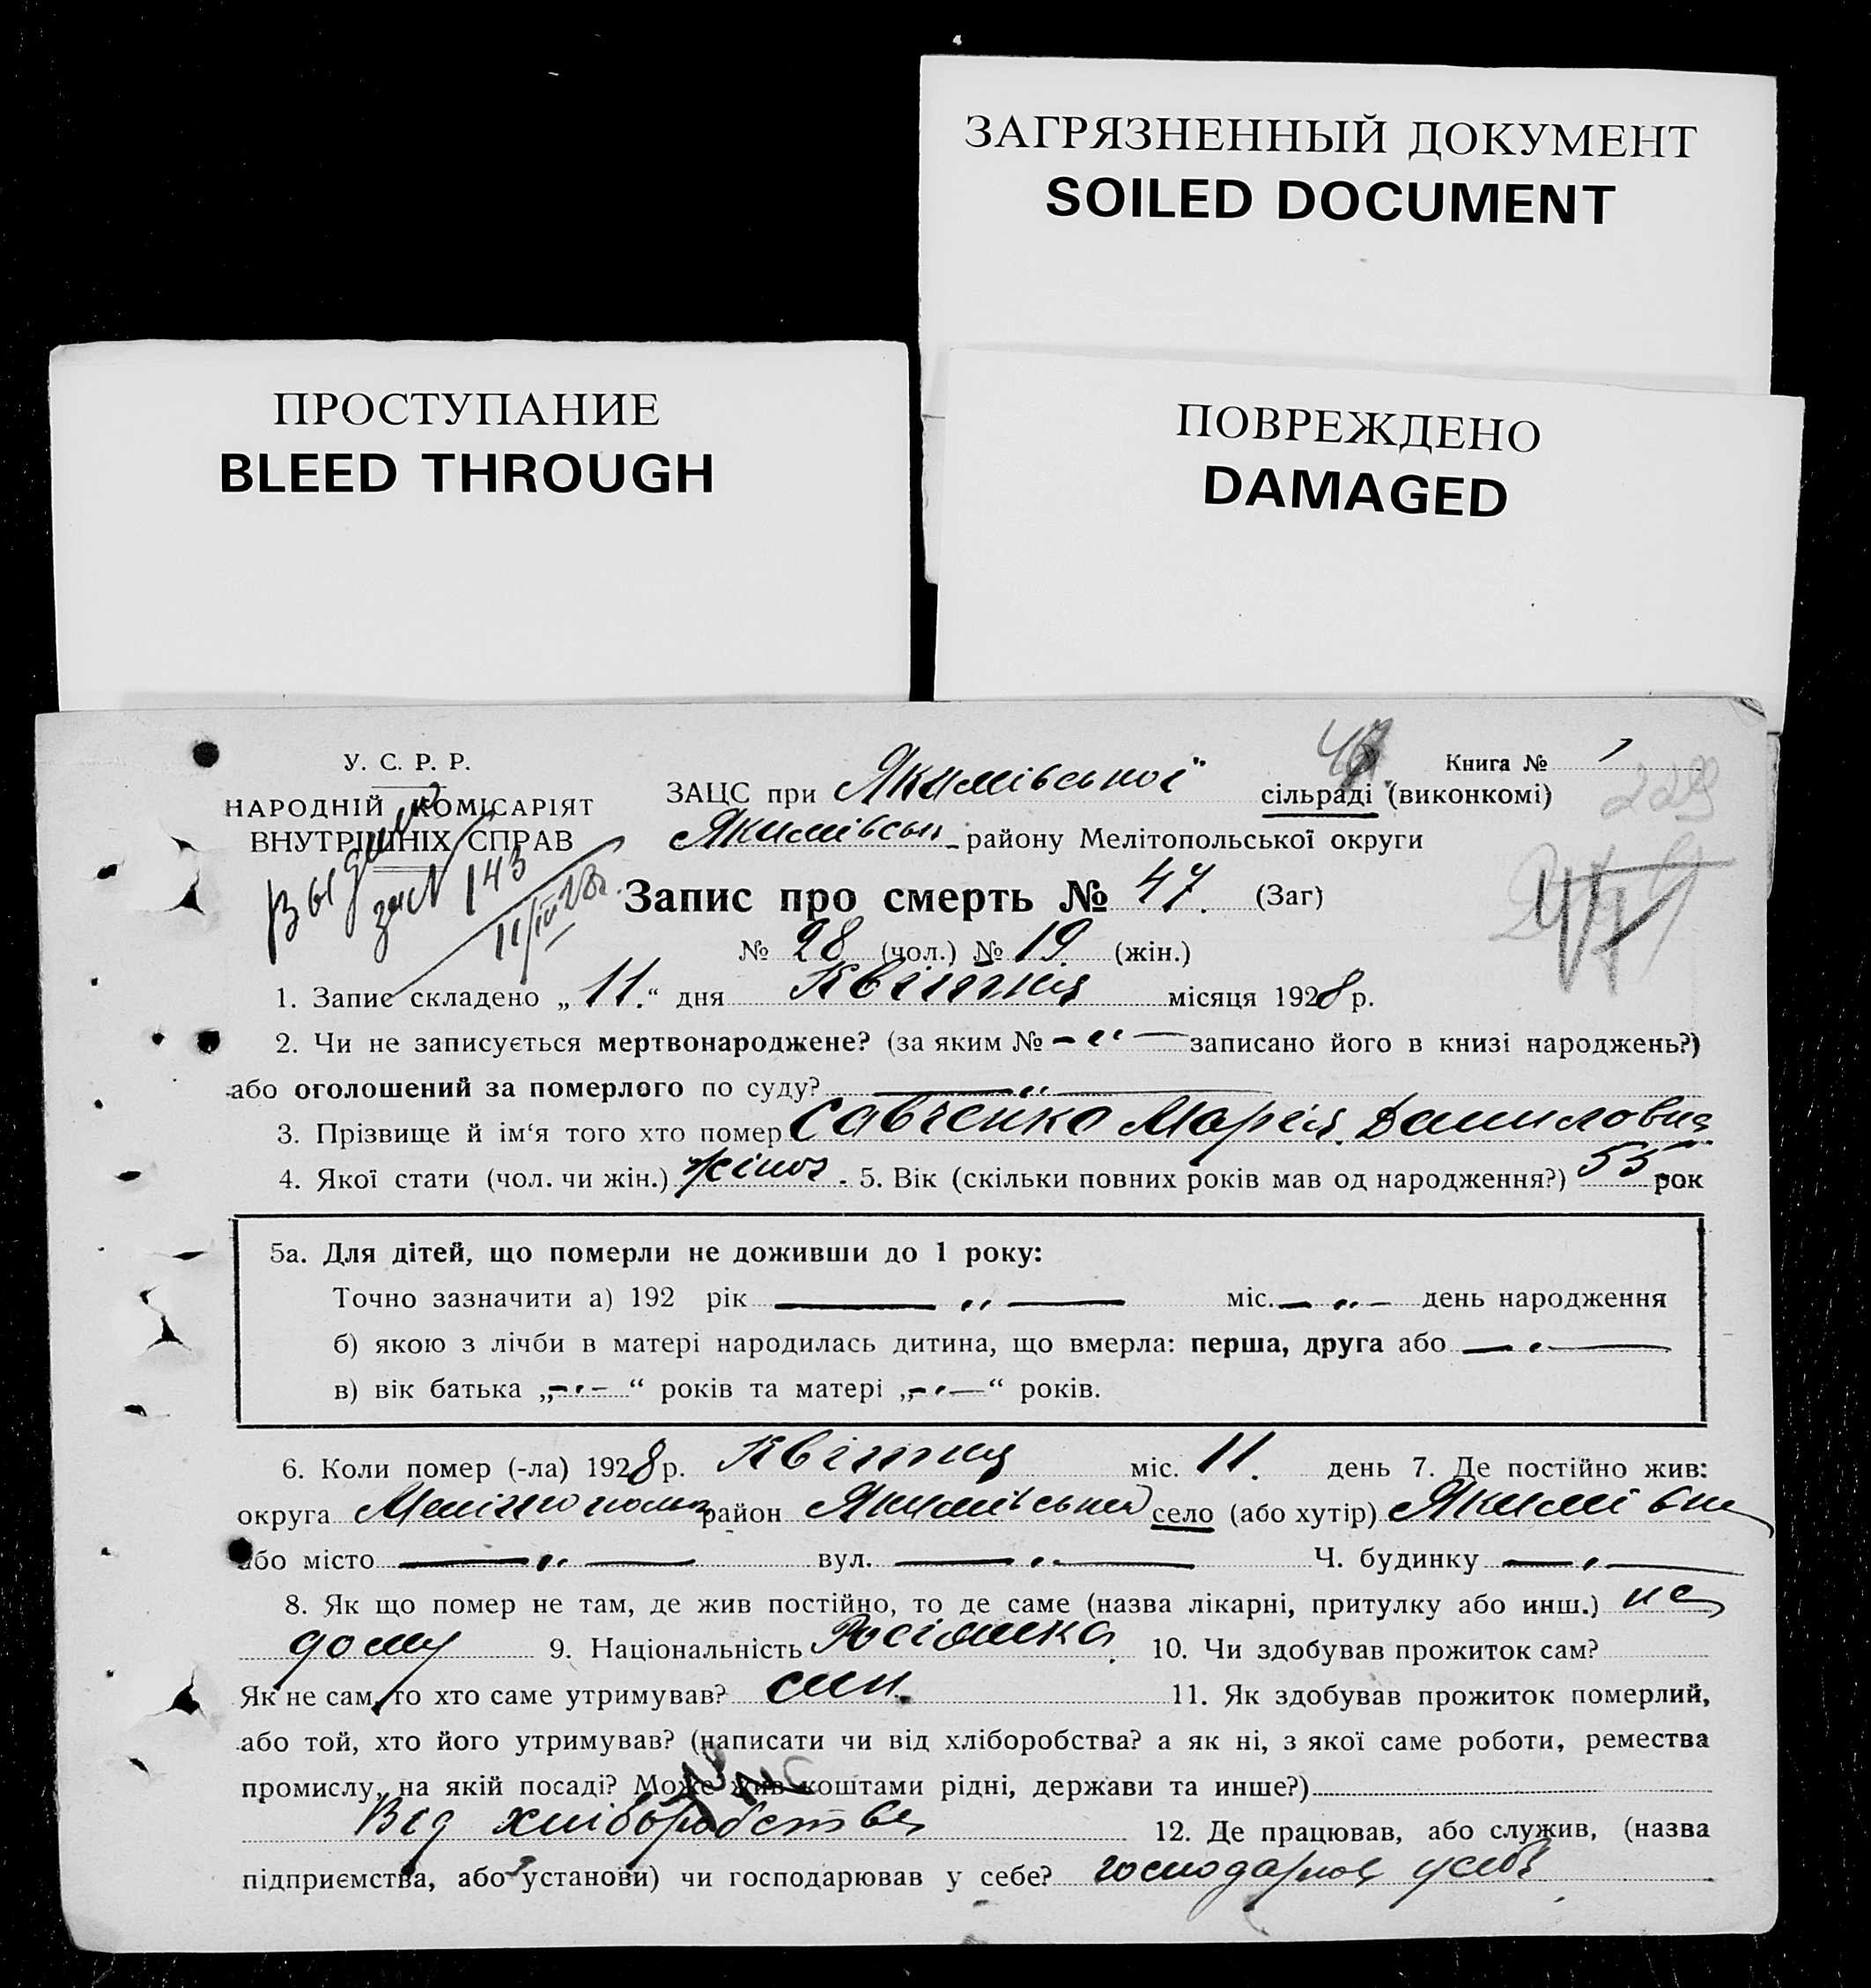 ЗАГРЯЗНЕННЫЙ ДОКУМЕНТ
SOILED DOCUMENT
ПРОСТУПАНИЕ
BLEED THROUGH
ПОВРЕЖДЕНО
DAMAGED
У. С. Р. Р.
НАРОДНІЙ КОМІСАРІЯТ
ВНУТРІШНІХ СПРАВ
143
Книга № 1
ЗАЦС при Якимівської сільраді (виконкомі)
229
Якимівськ. району Мелітопольської округи
Запис про смерть № 47. (Заг)
№ 28 (чол.) № 19 (жін.)
1. Запис складено „ 11. “ дня Квітня місяця 1928 р.
2. Чи не записується мертвонароджене? (за яким № — „ — записано його в книзі народжень?)
або оголошений за померлого по суду? — „ —
3. Прізвище й ім‘я того хто помер Савченко Марія Даниловна
4. Якої стати (чол. чи жін.) жіноч. 5. Вік (скільки повних років мав од народження?) 55 рок
5а. Для дітей, що померли не доживши до 1 року:
Точно зазначити а) 192 рік — „ — міс. — „ — день народження
б) якою з лічби в матері народилась дитина, що вмерла: перша, друга або — „ —
в) вік батька „ — „ — “ років та матері „ — „ — “ років.
6. Коли помер (-ла) 1928 р. Квітня міс. 11. день 7. Де постійно жив:
округа Мелітопольск район Якимівський село (або хутір) Якимівка
або місто — „ — вул. — „ — Ч. будинку — „ —
8. Як що помер не там, де жив постійно, то де саме (назва лікарні, притулку або инш.) на
дому 9. Національність Росіянка. 10. Чи здобував прожиток сам?
Як не сам, то хто саме утримував? син. 11. Як здобував прожиток померлий,
або той, хто його утримував? (написати чи від хліборобства? а як ні, з якої саме роботи, ремества
промислу, на якій посаді? Може жив коштами рідні, держави та инше?)
Від хліборобства 12. Де працював, або служив, (назва
підприємства, або установи) чи господарював у себе? господарюв у себе